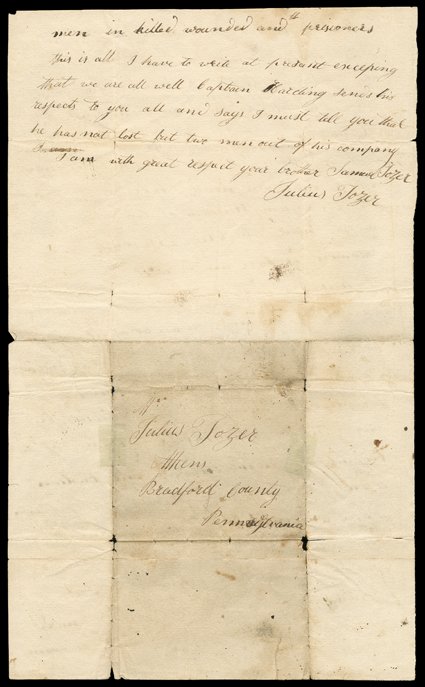 men in killed wounded and prisioners
this is all I have to write at presant excepting
that we are all well Captain Harding sends his
respects to you all and says I must tell you that
he has not lost but two men out of his company
I am with great respect your brother Samuel Tozer
Julius Tozer
Mr
Julius Tozer
Athens
Bradford County
Pennsylvania